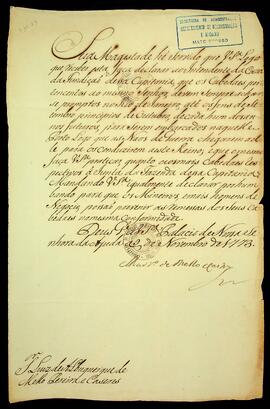 Sua Magestade hé servido que V. S.ª logo
que receber esta faça declarar ao Intendente da Caza
da Fundição dessa Capitania, que os Cabedaes per-
tencentes ao mesmo Senhor devem sempre achar-
se promptos no Rio de Janeiro, até os fins de Se-
tembro principios de Outubro de cada hum dos an-
nos futuros, para serem embarcados naquelle
Porto logo que as Naos de Guerra chegarem a el-
le para os conduzirem a este Reino: E que o mesmo
faça V. S.ª praticar, quanto aos mais Cabedaes res-
pectivos á Junta da Fazenda dessa Capitania:
Mandando V. S.ª igualmente declarar por hum
bando para que os Mineiros, e mais Homens de
Negocio, possão prevenir as remessas dos seus Ca-
bedaes na mesma conformidade.
Deos G.de a V. S.ª Palacio de Nossa Se-
nhora da Ajuda de Novembro de 1773
de Mello
S.r Luiz de Albuquerque de
Mello Pereira e Caseres
MATO GROSSO